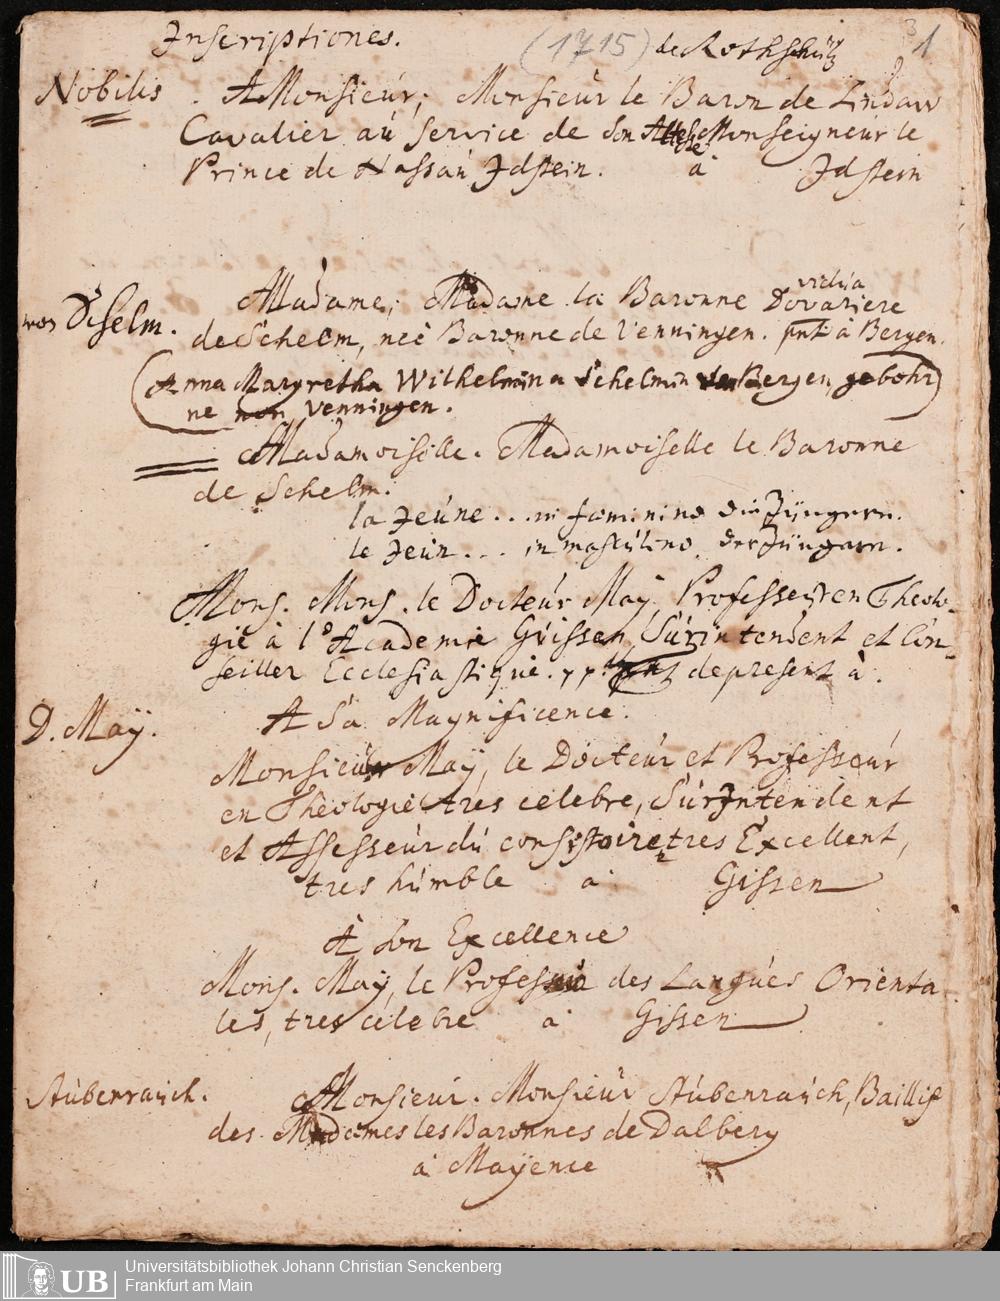 Inscriptiones.
(1715) de Rothschütz
3 1
Nobilis
A Monsieur, Monsieur le Baron de Lindaw
Cavalier aú service de son Altesse Monseigneúr le
Prince de Nassaú Idstein. à Idstein
von Schelm.
Madame, Madame la Baronne Dovariere
vidua
de Schelm, neé Baronne de Venningen. à Bergen.
(Anna Margretha Wilhelmina Schelmin von Bergen, gebohr
ne von Venningen.)
Madamoiselle. Madamoiselle le Baronne
de Schelm.
la Jeúne ... in foeminino die Jüngere.
le Jeún ... in masculino. der Jüngere.
Mons. Mons. le Docteúr Maÿ, Professeur en Theolo-
gie à l'Academie Giissen, Súrintendent et Con-
seiller Ecclesiastiqúe. pp. de present à.
D. Maÿ.
A Sa Magnificence.
Monsieúr Maÿ, le Docteúr et Professeúr
en Theologie tres celebre, SúrIntendent
et Assesseúr dú consistoire tres Excellent,
tres húmble a Gissen
À Son Excellence
Mons. Maÿ, le Professeur des Langúes Orienta
les, tres célebre a Gissen
Stúbenraúch.
Monsieur. Monsieúr Stúbenraúch, Baillif
des Madames les Baronnes de Dalberg
à Maÿence
UB
Universitätsbibliothek Johann Christian Senckenberg
Frankfurt am Main